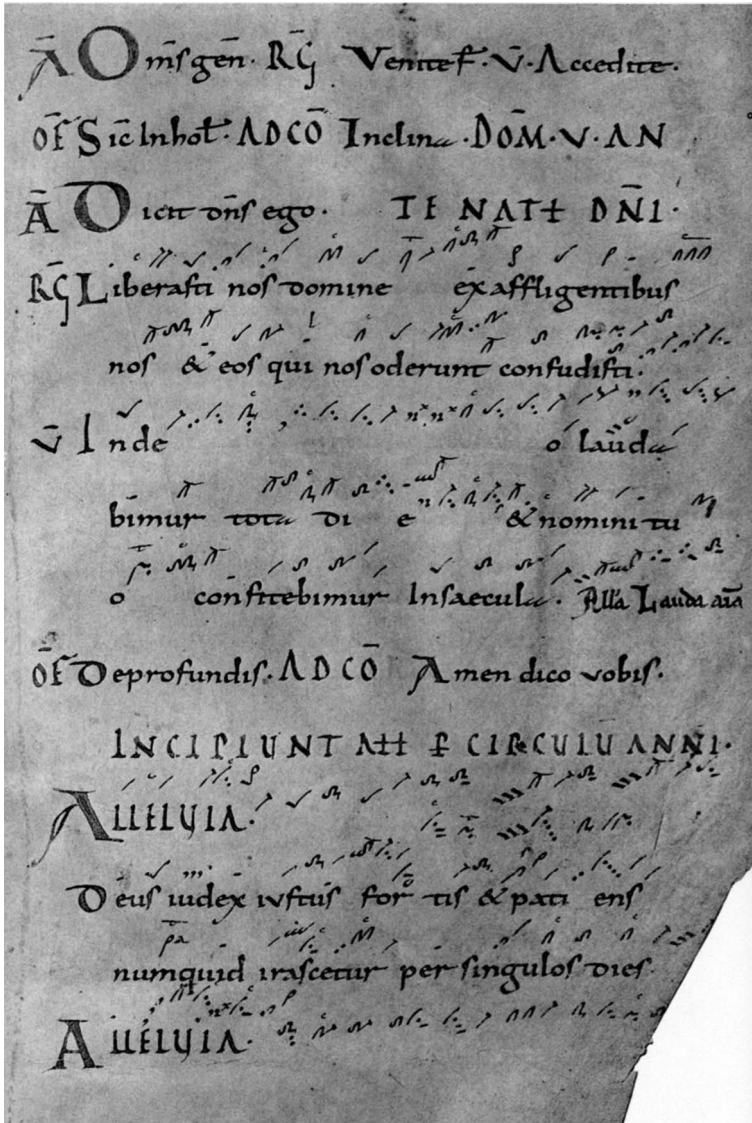 Ā Om̄s gen̄. RG Venite F. V̄. Accedite.
OF̄ Sic̄ In hol. AD CŌ Inclina. DOM̄. V. AN
Ā Dicit dn̄s ego. TE NATꝉ DN̄I.
RG Liberasti nos domine ex affligentibus
nos & eos qui nos oderunt confudisti.
V̄ In de o laudā
bimur tota di e & nomini tu
o confitebimur In saecula. All'a Lauda aīa
OF̄ De profundis. AD CŌ Amen dico vobis.
INCIPIUNT AꝉꝉP CIRCULŪ ANNI.
ALLELUIA.
Deus iudex iustus for tis & pati ens
numquid irascetur per singulos dies.
ALLELUIA.